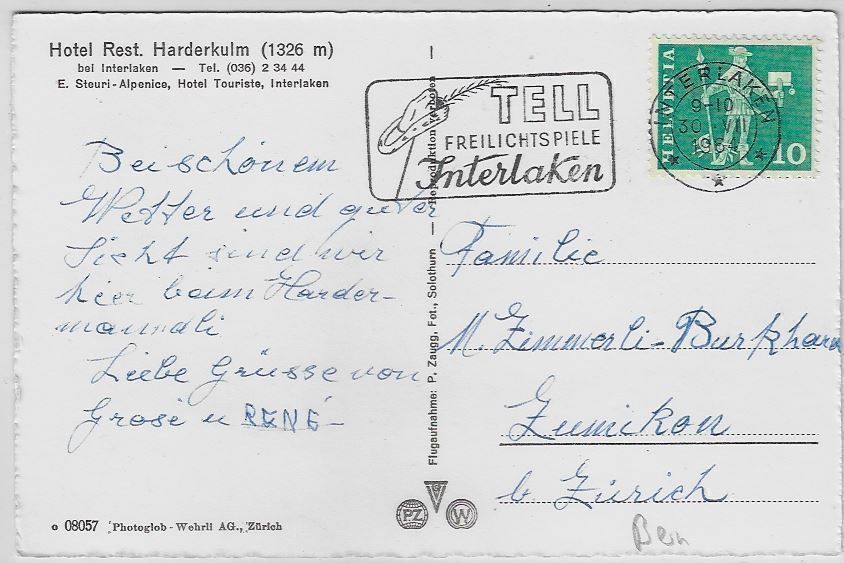 Hotel Rest. Harderkulm (1326 m)
bei Interlaken — Tel. (036) 2 34 44
E. Steuri-Alpenice, Hotel Touriste, Interlaken
Bei schönem
Wetter und guter
Sicht sind wir
hier beim Harder-
manndli
Liebe Grüsse von
Grosi u RENÉ
o 08057 Photoglob-Wehrli AG., Zürich
Flugaufnahme: P. Zaugg, Fot., Solothurn — Reproduktion verboten —
PZ W
TELL
FREILICHTSPIELE
Interlaken
HELVETIA
10
INTERLAKEN
9-10
30
Familie
M. Zimmerli-Burkhard
Zumikon
b. Zürich
Bern